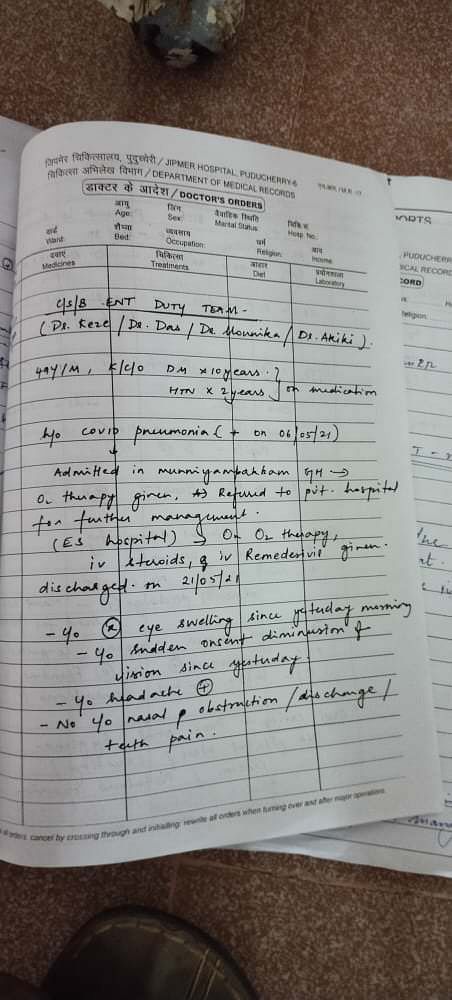 जिपमेर चिकित्सालय, पुदुच्चेरी / JIPMER HOSPITAL, PUDUCHERRY-6
चिकित्सा अभिलेख विभाग / DEPARTMENT OF MEDICAL RECORDS
डाक्टर के आदेश / DOCTOR'S ORDERS
आयु लिंग वैवाहिक स्थिति
Age: Sex: Marital Status Hosp. No.:
वार्ड शैय्या व्यवसाय धर्म आय
Ward: Bed: Occupation: Religion: Income:
दवाएं चिकित्सा आहार प्रयोगशाला
Medicines Treatments Diet Laboratory
C/S/B ENT DUTY TEAM -
(Dr. / Dr. Das / Dr. Mounika / Dr. Akiki).
49Y/M, K/C/O DM x 10 years.
HTN x 2 years. on medication
h/o covid pneumonia (+ on 06/05/21)
Admitted in GH →
O2 therapy given, Refured to pvt. hospital
for further management.
(ES hospital) → On O2 therapy,
iv steroids, & iv Remedesivil given.
discharged on 21/05/21
- c/o eye swelling since yesterday morning
- c/o sudden onsent diminusion of
vision since yesterday.
- c/o headache (+)
- No c/o nasal obstruction / discharge /
teeth pain.
orders cancel by crossing through and initialling: rewrite all orders when turning over and after major operations.
PUDUCHERR
ICAL RECORD
CORD